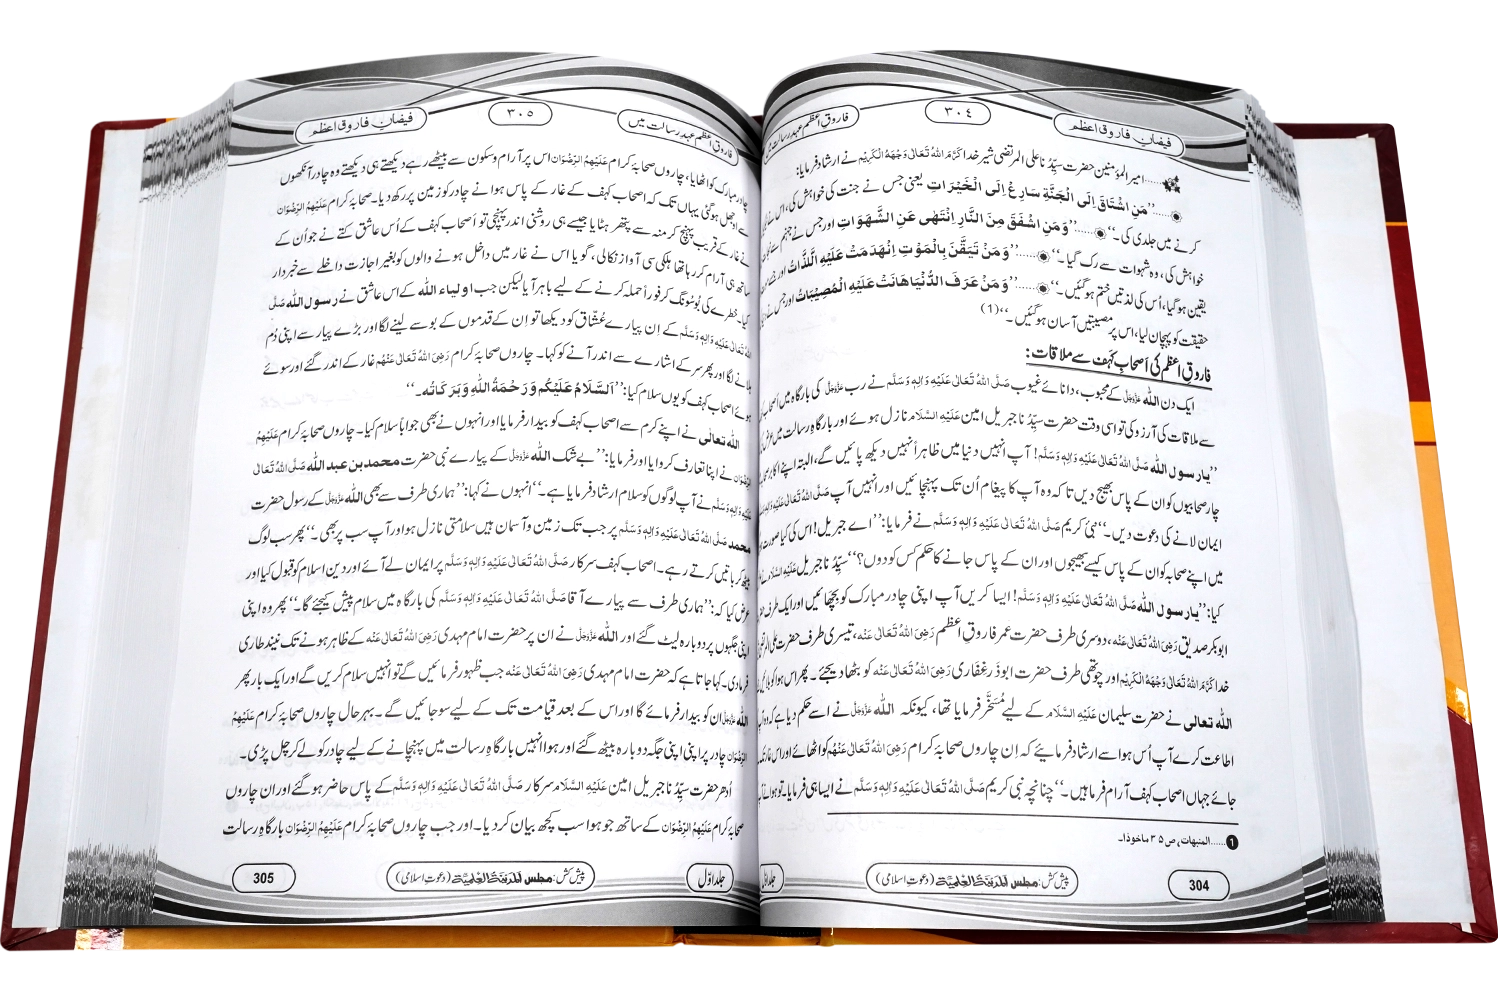 فیضانِ فاروقِ اعظم
٣٠٤
فاروقِ اعظم عہدِ رسالت میں
......امیر المؤمنین حضرت سیِّدُنا علی المرتضی شیرِ خدا کَرَّمَ اللهُ تَعَالٰی وَجْهَهُ الْكَرِیْم نے ارشاد فرمایا:
......’’مَنِ اشْتَاقَ اِلَی الْجَنَّةِ سَارِعْ اِلَی الْخَیْرَاتِ یعنی جس نے جنت کی خواہش کی، اس نے
کرنے میں جلدی کی۔‘‘ ......’’وَمَنِ اشْفَقَ مِنَ النَّارِ اِنْتَهٰی عَنِ الشَّهَوَاتِ اور جس نے جہنم سے
خواہش کی، وہ شہوات سے رک گیا۔‘‘ ......’’وَمَنْ تَیَقَّنَ بِالْمَوْتِ اِنْهَدَمَتْ عَلَیْهِ الَّلذَّاتُ اور
یقین ہوگیا، اُس کی لذتیں ختم ہوگئیں۔‘‘ ......’’وَمَنْ عَرَفَ الدُّنْیَا هَانَتْ عَلَیْهِ الْمُصِیْبَاتُ اور جس نے
حقیقت کو پہچان لیا، اس پر مصیبتیں آسان ہوگئیں۔‘‘(1)
فاروقِ اعظم کی اَصحابِ کَہف سے ملاقات:
ایک دن الله عَزَّوَجَلَّ کے محبوب، دانائے غیوب صَلَّی اللهُ تَعَالٰی عَلَیْهِ وَاٰلِهٖ وَسَلَّم نے رب عَزَّوَجَلَّ کی بارگاہ میں اصحابِ
سے ملاقات کی آرزو کی تو اسی وقت حضرت سیِّدُنا جبریل امین عَلَیْهِ السَّلَام نازل ہوئے اور بارگاہِ رسالت میں عرض
’’یارسول الله صَلَّی اللهُ تَعَالٰی عَلَیْهِ وَاٰلِهٖ وَسَلَّم! آپ انہیں دنیا میں ظاہراً نہیں دیکھ پائیں گے، البتہ اپنے اکابر
چار صحابیوں کو ان کے پاس بھیج دیں تا کہ وہ آپ کا پیغام اُن تک پہنچائیں اور انہیں آپ صَلَّی اللهُ تَعَالٰی عَلَیْهِ وَاٰلِهٖ وَسَلَّم
ایمان لانے کی دعوت دیں۔‘‘ نبیِٔ کریم صَلَّی اللهُ تَعَالٰی عَلَیْهِ وَاٰلِهٖ وَسَلَّم نے فرمایا: ’’اے جبریل! اس کی کیا صورت
میں اپنے صحابہ کو ان کے پاس کیسے بھیجوں اور ان کے پاس جانے کا حکم کس کو دوں؟‘‘ سیِّدُنا جبریل عَلَیْهِ السَّلَام نے
کیا: ’’یارسول الله صَلَّی اللهُ تَعَالٰی عَلَیْهِ وَاٰلِهٖ وَسَلَّم! ایسا کریں آپ اپنی چادر مبارک کو بچھائیں اور ایک طرف
ابوبکر صدیق رَضِیَ اللهُ تَعَالٰی عَنْه، دوسری طرف حضرت عمر فاروقِ اعظم رَضِیَ اللهُ تَعَالٰی عَنْه، تیسری طرف حضرت علی
خدا کَرَّمَ اللهُ تَعَالٰی وَجْهَهُ الْكَرِیْم اور چوتھی طرف حضرت ابوذر غفاری رَضِیَ اللهُ تَعَالٰی عَنْه کو بٹھا دیجئے۔ پھر اس ہوا کو
الله تعالٰی نے حضرت سلیمان عَلَیْهِ السَّلَام کے لیے مُسَخَّر فرمایا تھا، کیونکہ الله عَزَّوَجَلَّ نے اسے حکم دیا ہے کہ وہ
اطاعت کرے آپ اُس ہوا سے ارشاد فرمائیے کہ اِن چاروں صحابۂ کرام رَضِیَ اللهُ تَعَالٰی عَنْهُم کو اٹھائے اور اس غار تک
جائے جہاں اصحابِ کہف آرام فرما ہیں۔‘‘ چنانچہ نبی کریم صَلَّی اللهُ تَعَالٰی عَلَیْهِ وَاٰلِهٖ وَسَلَّم نے ایسا ہی فرمایا۔ تو ہوا نے
1......المنبهات، ص ٣٥ ماخوذا۔
304
پیش کش: مجلس اَلْمَدِیْنَةُ الْعِلْمِیَّة (دعوتِ اسلامی)
جلد اوّل
فاروقِ اعظم عہدِ رسالت میں
٣٠٥
فیضانِ فاروقِ اعظم
چادر مبارک کو اٹھایا، چاروں صحابۂ کرام عَلَیْهِمُ الرِّضْوَان اس پر آرام وسکون سے بیٹھے رہے دیکھتے ہی دیکھتے وہ چادر آنکھوں
سے اوجھل ہوگئی یہاں تک کہ اصحابِ کہف کے غار کے پاس ہوا نے چادر کو زمین پر رکھ دیا۔ صحابۂ کرام عَلَیْهِمُ الرِّضْوَان
نے غار کے قریب پہنچ کر منہ سے پتھر ہٹایا جیسے ہی روشنی اندر پہنچی تو اصحابِ کہف کے اُس عاشق کتے نے جو اُن کے
ساتھ ہی آرام کر رہا تھا ہلکی سی آواز نکالی، گویا اس نے غار میں داخل ہونے والوں کو بغیر اجازت داخلے سے خبردار
کیا۔ خطرے کی بُو سُونگ کر فوراً حملہ کرنے کے لیے باہر آیا لیکن جب اولیاء الله کے اس عاشق نے رسول الله صَلَّی
اللهُ تَعَالٰی عَلَیْهِ وَاٰلِهٖ وَسَلَّم کے اِن پیارے عُشّاق کو دیکھا تو اِن کے قدموں کے بوسے لینے لگا اور بڑے پیار سے اپنی دُم
ہلانے لگا اور پھر سر کے اشارے سے اندر آنے کو کہا۔ چاروں صحابۂ کرام رَضِیَ اللهُ تَعَالٰی عَنْهُم غار کے اندر گئے اور سوئے
ہوئے اصحابِ کہف کو یوں سلام کیا: ’’اَلسَّلَامُ عَلَیْكُم وَرَحْمَةُ اللهِ وَبَرَكَاتُه۔‘‘
الله تعالٰی نے اپنے کرم سے اصحابِ کہف کو بیدار فرمایا اور انہوں نے بھی جواباً سلام کیا۔ چاروں صحابۂ کرام عَلَیْهِمُ
الرِّضْوَان نے اپنا تعارف کروایا اور فرمایا: ’’بے شک الله عَزَّوَجَلَّ کے پیارے نبی حضرت محمد بن عبد الله صَلَّی اللهُ تَعَالٰی
عَلَیْهِ وَاٰلِهٖ وَسَلَّم نے آپ لوگوں کو سلام ارشاد فرمایا ہے۔‘‘ انہوں نے کہا: ’’ہماری طرف سے بھی الله عَزَّوَجَلَّ کے رسول حضرت
محمد صَلَّی اللهُ تَعَالٰی عَلَیْهِ وَاٰلِهٖ وَسَلَّم پر جب تک زمین وآسمان ہیں سلامتی نازل ہو اور آپ سب پر بھی۔‘‘ پھر سب لوگ
بیٹھ کر باتیں کرتے رہے۔ اصحابِ کہف سرکار صَلَّی اللهُ تَعَالٰی عَلَیْهِ وَاٰلِهٖ وَسَلَّم پر ایمان لے آئے اور دین اسلام کو قبول کیا اور
عرض کیا کہ: ’’ہماری طرف سے پیارے آقا صَلَّی اللهُ تَعَالٰی عَلَیْهِ وَاٰلِهٖ وَسَلَّم کی بارگاہ میں سلام پیش کیجئے گا۔‘‘ پھر وہ اپنی
اپنی جگہوں پر دوبارہ لیٹ گئے اور الله عَزَّوَجَلَّ نے ان پر حضرت امام مہدی رَضِیَ اللهُ تَعَالٰی عَنْه کے ظاہر ہونے تک نیند طاری
فرمادی۔ کہا جاتا ہے کہ حضرت امام مہدی رَضِیَ اللهُ تَعَالٰی عَنْه جب ظہور فرمائیں گے تو انہیں سلام کریں گے اور ایک بار پھر
الله عَزَّوَجَلَّ ان کو بیدار فرمائے گا اور اس کے بعد قیامت تک کے لیے سو جائیں گے۔ بہرحال چاروں صحابۂ کرام عَلَیْهِمُ
الرِّضْوَان چادر پر اپنی اپنی جگہ دوبارہ بیٹھ گئے اور ہوا انہیں بارگاہِ رسالت میں پہنچانے کے لیے چادر کو لے کر چل پڑی۔
اُدھر حضرت سیِّدُنا جبریل امین عَلَیْهِ السَّلَام سرکار صَلَّی اللهُ تَعَالٰی عَلَیْهِ وَاٰلِهٖ وَسَلَّم کے پاس حاضر ہوگئے اور ان چاروں
صحابۂ کرام عَلَیْهِمُ الرِّضْوَان کے ساتھ جو ہوا سب کچھ بیان کردیا۔ اور جب چاروں صحابۂ کرام عَلَیْهِمُ الرِّضْوَان بارگاہِ رسالت
جلد اوّل
پیش کش: مجلس اَلْمَدِیْنَةُ الْعِلْمِیَّة (دعوتِ اسلامی)
305